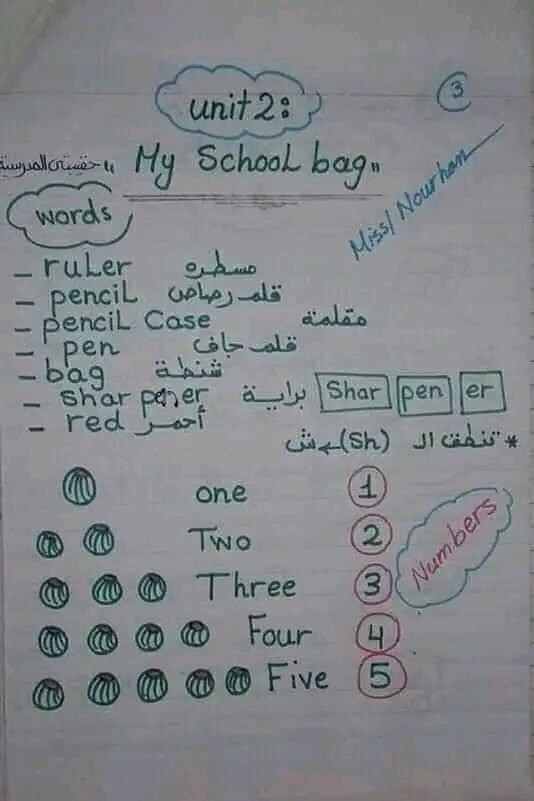 3
unit 2:
"My School bag" حقيبتى المدرسية
Miss/ Nourhan
words
- ruler مسطره
- pencil قلم رصاص
- pencil Case مقلمة
- pen قلم جاف
- bag شنطة
- sharpener براية Shar pen er
- red أحمر
* تنطق ال (Sh) ے ش
one 1
Two 2
Numbers
Three 3
Four 4
Five 5